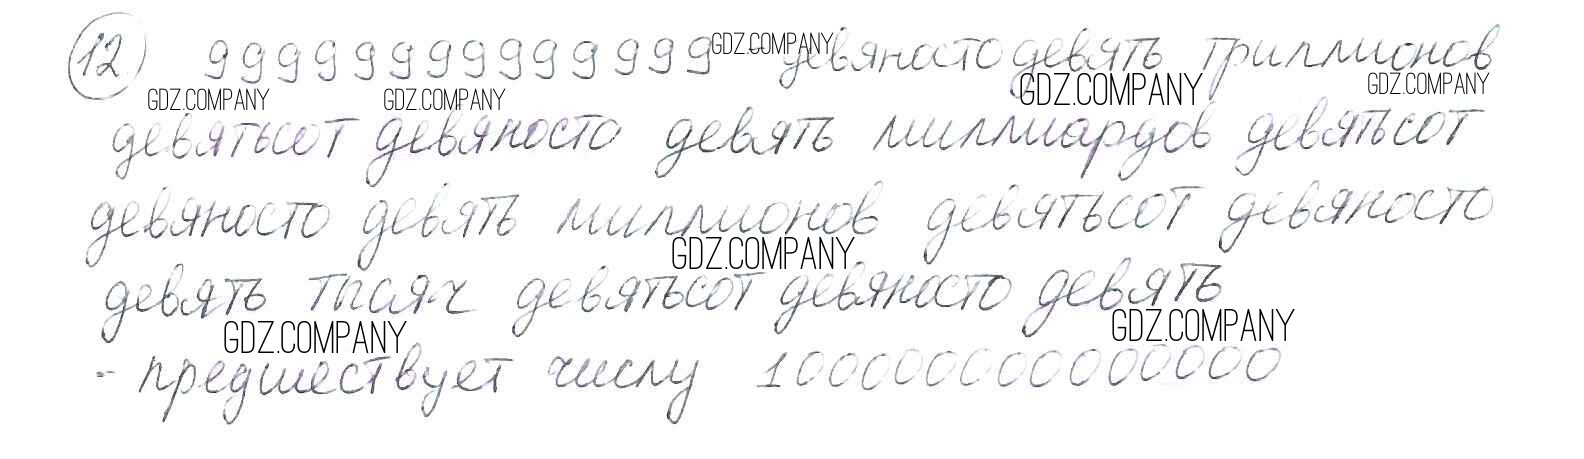 12 99999999999999 - девяносто девять триллионов
GDZ.COMPANY
GDZ.COMPANY GDZ.COMPANY GDZ.COMPANY GDZ.COMPANY
девятьсот девяносто девять миллиардов девятьсот
девяносто девять миллионов девятьсот девяносто
GDZ.COMPANY
девять тысяч девятьсот девяносто девять
GDZ.COMPANY GDZ.COMPANY
- предшествует числу 100000000000000